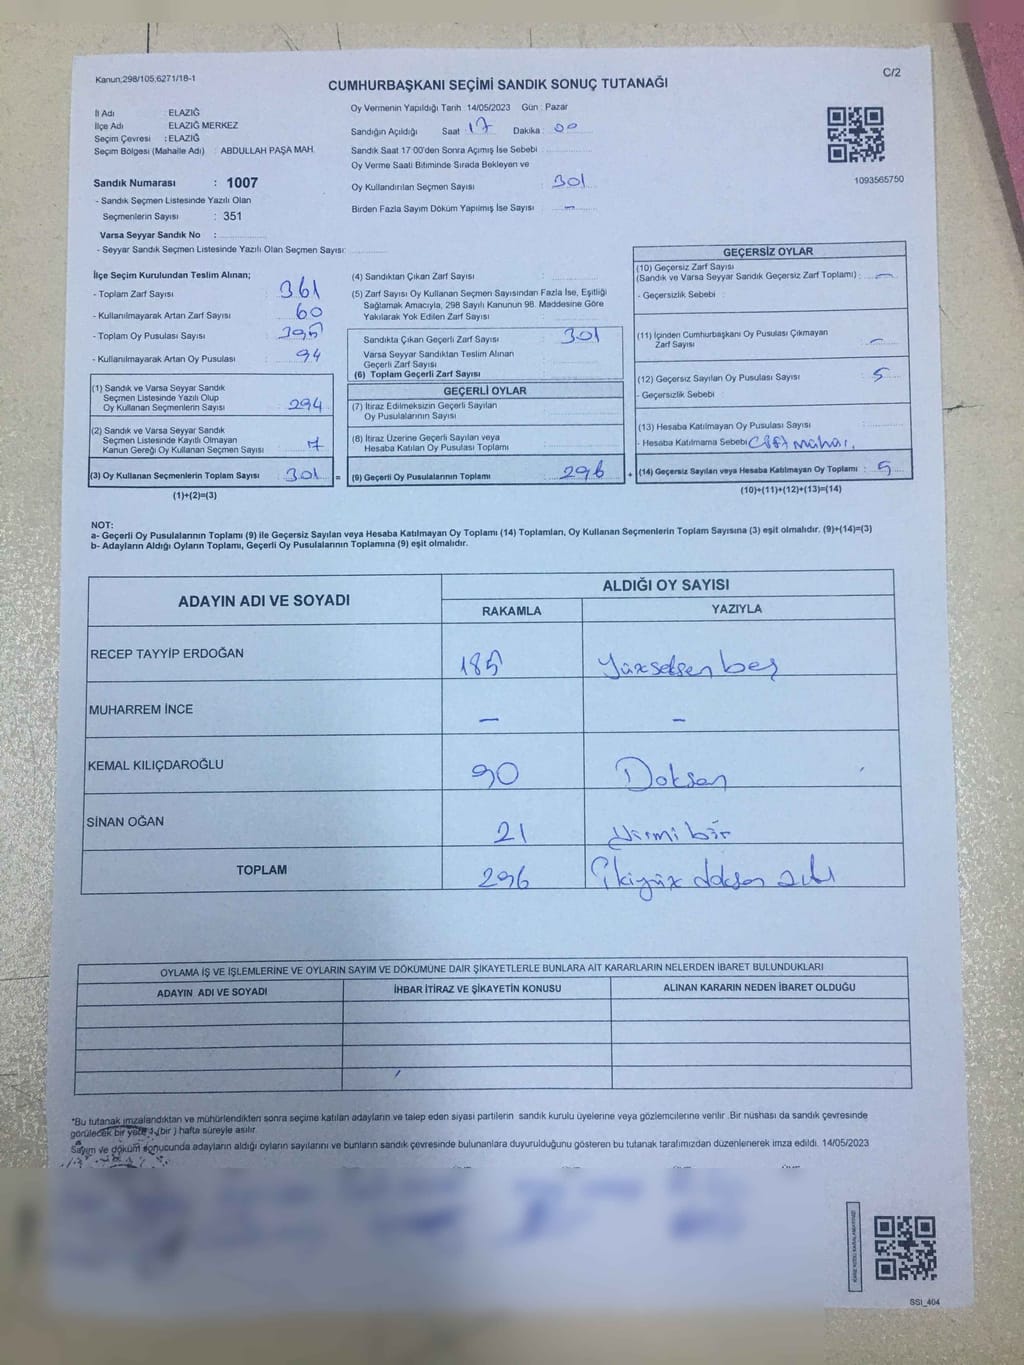 Kanun;298/105,6271/18-1
C/2
CUMHURBAŞKANI SEÇİMİ SANDIK SONUÇ TUTANAĞI
İl Adı : ELAZIĞ
İlçe Adı : ELAZIĞ MERKEZ
Seçim Çevresi : ELAZIĞ
Seçim Bölgesi (Mahalle Adı) : ABDULLAH PAŞA MAH.
Sandık Numarası : 1007
- Sandık Seçmen Listesinde Yazılı Olan
Seçmenlerin Sayısı : 351
Varsa Seyyar Sandık No :
- Seyyar Sandık Seçmen Listesinde Yazılı Olan Seçmen Sayısı:
Oy Vermenin Yapıldığı Tarih :14/05/2023 Gün : Pazar
Sandığın Açıldığı Saat : 17 Dakika : 00
Sandık Saat 17:00'den Sonra Açmış İse Sebebi
Oy Verme Saati Bitiminde Sırada Bekleyen ve
Oy Kullandırılan Seçmen Sayısı : 301
Birden Fazla Sayım Döküm Yapılmış İse Sayısı : -
1093565750
İlçe Seçim Kurulundan Teslim Alınan;
- Toplam Zarf Sayısı : 361
- Kullanılmayarak Artan Zarf Sayısı : 60
- Toplam Oy Pusulası Sayısı : 395
- Kullanılmayarak Artan Oy Pusulası : 94
(1) Sandık ve Varsa Seyyar Sandık
Seçmen Listesinde Yazılı Olup
Oy Kullanan Seçmenlerin Sayısı : 294
(2) Sandık ve Varsa Seyyar Sandık
Seçmen Listesinde Kayıtlı Olmayan
Kanun Gereği Oy Kullanan Seçmen Sayısı : 7
(3) Oy Kullanan Seçmenlerin Toplam Sayısı : 301 =
(1)+(2)=(3)
(4) Sandıktan Çıkan Zarf Sayısı :
(5) Zarf Sayısı Oy Kullanan Seçmen Sayısından Fazla İse, Eşitliği
Sağlamak Amacıyla, 298 Sayılı Kanunun 98. Maddesine Göre
Yakılarak Yok Edilen Zarf Sayısı :
Sandıkta Çıkan Geçerli Zarf Sayısı : 301
Varsa Seyyar Sandıktan Teslim Alınan
Geçerli Zarf Sayısı :
(6) Toplam Geçerli Zarf Sayısı :
GEÇERLİ OYLAR
(7) İtiraz Edilmeksizin Geçerli Sayılan
Oy Pusulalarının Sayısı :
(8) İtiraz Üzerine Geçerli Sayılan veya
Hesaba Katılan Oy Pusulası Toplamı :
(9) Geçerli Oy Pusulalarının Toplamı : 296 +
GEÇERSİZ OYLAR
(10) Geçersiz Zarf Sayısı
(Sandık ve Varsa Seyyar Sandık Geçersiz Zarf Toplamı) : -
- Geçersizlik Sebebi :
(11) İçinden Cumhurbaşkanı Oy Pusulası Çıkmayan
Zarf Sayısı : -
(12) Geçersiz Sayılan Oy Pusulası Sayısı : 5
- Geçersizlik Sebebi :
(13) Hesaba Katılmayan Oy Pusulası Sayısı :
- Hesaba Katılmama Sebebi :
(14) Geçersiz Sayılan veya Hesaba Katılmayan Oy Toplamı : 5
(10)+(11)+(12)+(13)=(14)
NOT:
a- Geçerli Oy Pusulalarının Toplamı (9) ile Geçersiz Sayılan veya Hesaba Katılmayan Oy Toplamı (14) Toplamları, Oy Kullanan Seçmenlerin Toplam Sayısına (3) eşit olmalıdır. (9)+(14)=(3)
b- Adayların Aldığı Oyların Toplamı, Geçerli Oy Pusulalarının Toplamına (9) eşit olmalıdır.
ADAYIN ADI VE SOYADI
ALDIĞI OY SAYISI
RAKAMLA YAZIYLA
RECEP TAYYİP ERDOĞAN 185 Yüzseksen beş
MUHARREM İNCE - -
KEMAL KILIÇDAROĞLU 90 Doksan
SİNAN OĞAN 21 Yirmi bir
TOPLAM 296 İkiyüz doksan altı
OYLAMA İŞ VE İŞLEMLERİNE VE OYLARIN SAYIM VE DÖKÜMÜNE DAİR ŞİKAYETLERLE BUNLARA AİT KARARLARIN NELERDEN İBARET BULUNDUKLARI
ADAYIN ADI VE SOYADI İHBAR İTİRAZ VE ŞİKAYETİN KONUSU ALINAN KARARIN NEDEN İBARET OLDUĞU
*Bu tutanak imzalandıktan ve mühürlendikten sonra seçime katılan adayların ve talep eden siyasi partilerin sandık kurulu üyelerine veya gözlemcilerine verilir .Bir nüshası da sandık çevresinde
görülecek bir yere 1 (bir ) hafta süreyle asılır.
Sayım ve döküm sonucunda adayların aldığı oyların sayılarını ve bunların sandık çevresinde bulunanlara duyurulduğunu gösteren bu tutanak tarafımızdan düzenlenerek imza edildi. 14/05/2023
SSI_404